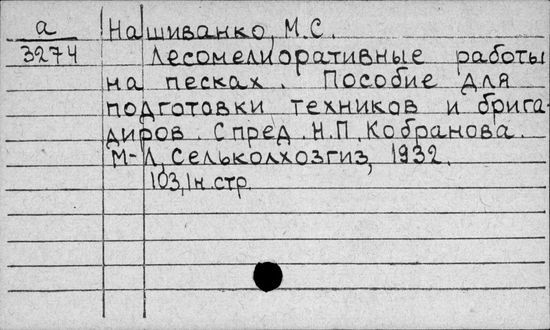 а Нашиванко, М.С.
3274 Лесомелиоративные работы
на песках. Пособие для
подготовки техников и брига-
диров. С пред. Н.П. Кобранова.
М-Л, Сельколхозгиз, 1932.
103,1н.стр.